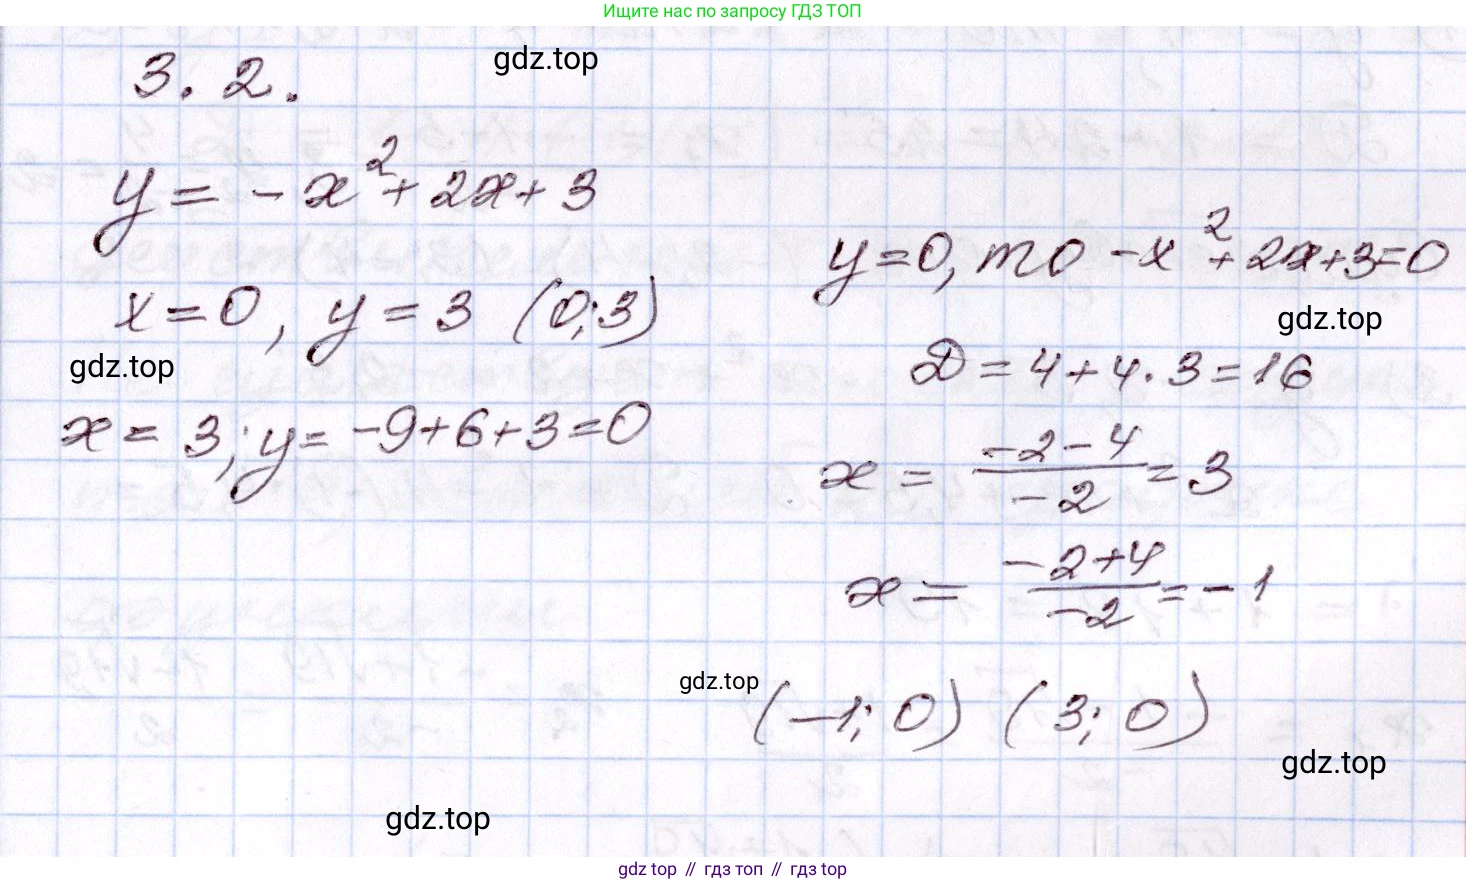 Ищите нас по запросу ГДЗ ТОП
3.2.
gdz.top
y = -x² + 2x + 3
x = 0, y = 3 (0; 3)
gdz.top
x = 3, y = -9+6+3=0
y=0, то -x²+2x+3=0
gdz.top
Д = 4+4·3=16
x = (-2-4)/(-2) = 3
x = (-2+4)/(-2) = -1
gdz.top
(-1; 0) (3; 0)
gdz.top
gdz.top
gdz top // гдз топ // гдз top